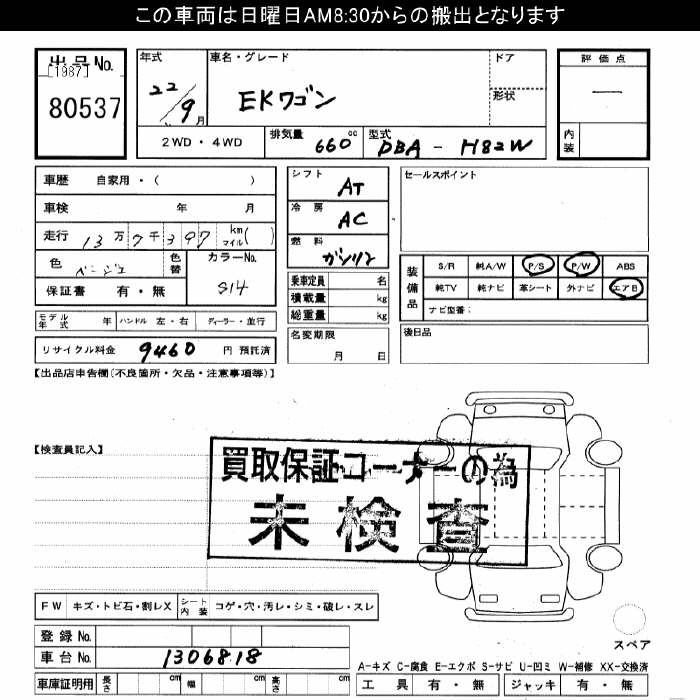 この車両は日曜日AM8:30からの搬出となります
出品No.
[1987]
80537
年式
22/9月
車名・グレード
EKワゴン
ドア
形状
評価点
一
内装
2WD・4WD
排気量 660cc
型式 DBA-H82W
車歴 自家用・( )
車検 年 月
走行 13万7千397 km マイル( )
色 ベージュ 色替
カラーNo. S14
保証書 有・無
シフト AT
冷房 AC
燃料 ガソリン
乗車定員 名
積載量 kg
総重量 kg
セールスポイント
装備品
S/R 純A/W P/S P/W ABS
純TV 純ナビ 革シート 外ナビ エアB
ナビ型番:
モデル年式 年 ハンドル 左・右 ディーラー・並行
名変期限 月 日
後日品
リサイクル料金 9460 円 預託済
【出品店申告欄(不良箇所・欠品・注意事項等)】
【検査員記入】
買取保証コーナーの為
未検査
FW キズ・トビ石・割レX シート内装 コゲ・穴・汚レ・シミ・破レ・スレ
スペア
登録No.
車台No. 1306818
A-キズ C-腐食 E-エクボ S-サビ U-凹ミ W-補修 XX-交換済
車庫証明用 長さ cm 幅 cm 高さ cm
工具 有・無 ジャッキ 有・無